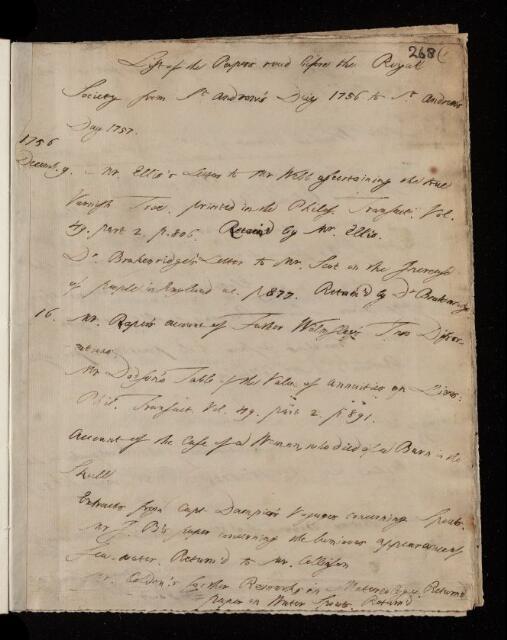 268(
List of the Papers read before the Royal
Society from St. Andrew's Day 1756 to St. Andrew's
Day 1757.
1756
Decemb. 9. Mr. Ellis's Letter to Mr Webb ascertaining the true
Varnish Tree. printed in the Philos. Transact. Vol.
49. part 2. p. 806. Retain'd by Mr. Ellis.
Dr. Brakenridge's Letter to Mr. on the Increase
of people in England &c. p. 877. Return'd by Dr Brakenridge
16. Mr. account of Father Walmsley's Two Disser-
tations.
Mr Dodson's Table of the Value of Annuities on Lives.
Phil. Transact. Vol. 49. part 2. p. 891.
Account of the Case of a Woman, who died of a Burn in the
Skull
Extracts from Capt. Dampier's Voyages concerning Spouts.
Mr J. B's paper concerning the luminous appearance of
Sea-water. Return'd to Mr. Collinson
Mr. Colden's farther Remarks on Meteorology. Return'd
paper on Water Spouts. Return'd